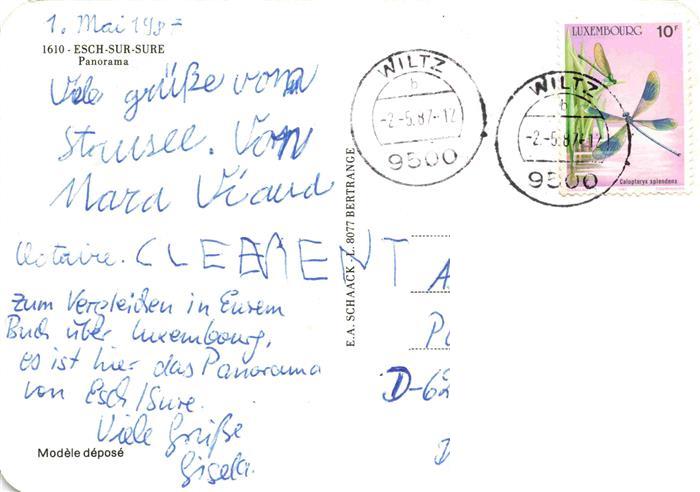 1. Mai 1987
1610 - ESCH-SUR-SURE
Panorama
Viele grüße vom
Stausee. Von
Mara Viand
Octavie. CLEMENT
Zum Vergleichen in Eurem
Buch über Luxembourg,
es ist hier das Panorama
von Esch/Sure.
Viele Grüße
Gisela.
Modèle déposé
E.A. SCHAACK - L. 8077 BERTRANGE
WILTZ
b
-2.-5.87-12
9500
WILTZ
b
-2.-5.87-12
9500
LUXEMBOURG 10F
Calopteryx splendens
A
D-62